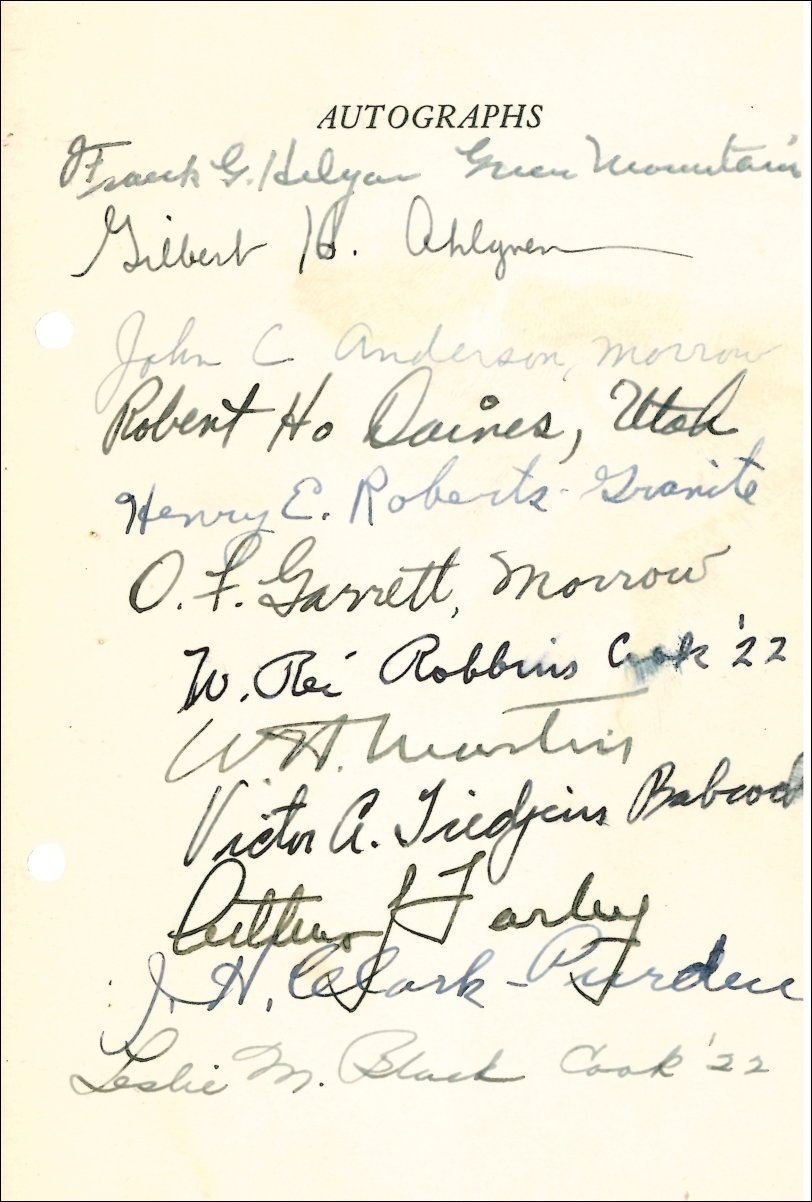 AUTOGRAPHS
Frank G. Helyar Green Mountain
Gilbert H. Ahlgren
John C Anderson, Morrow
Robert Ho Daines, Utah
Henry E. Roberts - Granite
O. F. Garrett, Morrow
W. Rei Robbins Cook '22
W. H. Martin
Victor A. Tiedjens Babcock
Arthur J Farley
J. H. Clark - Purdue
Leslie M. Black Cook '22